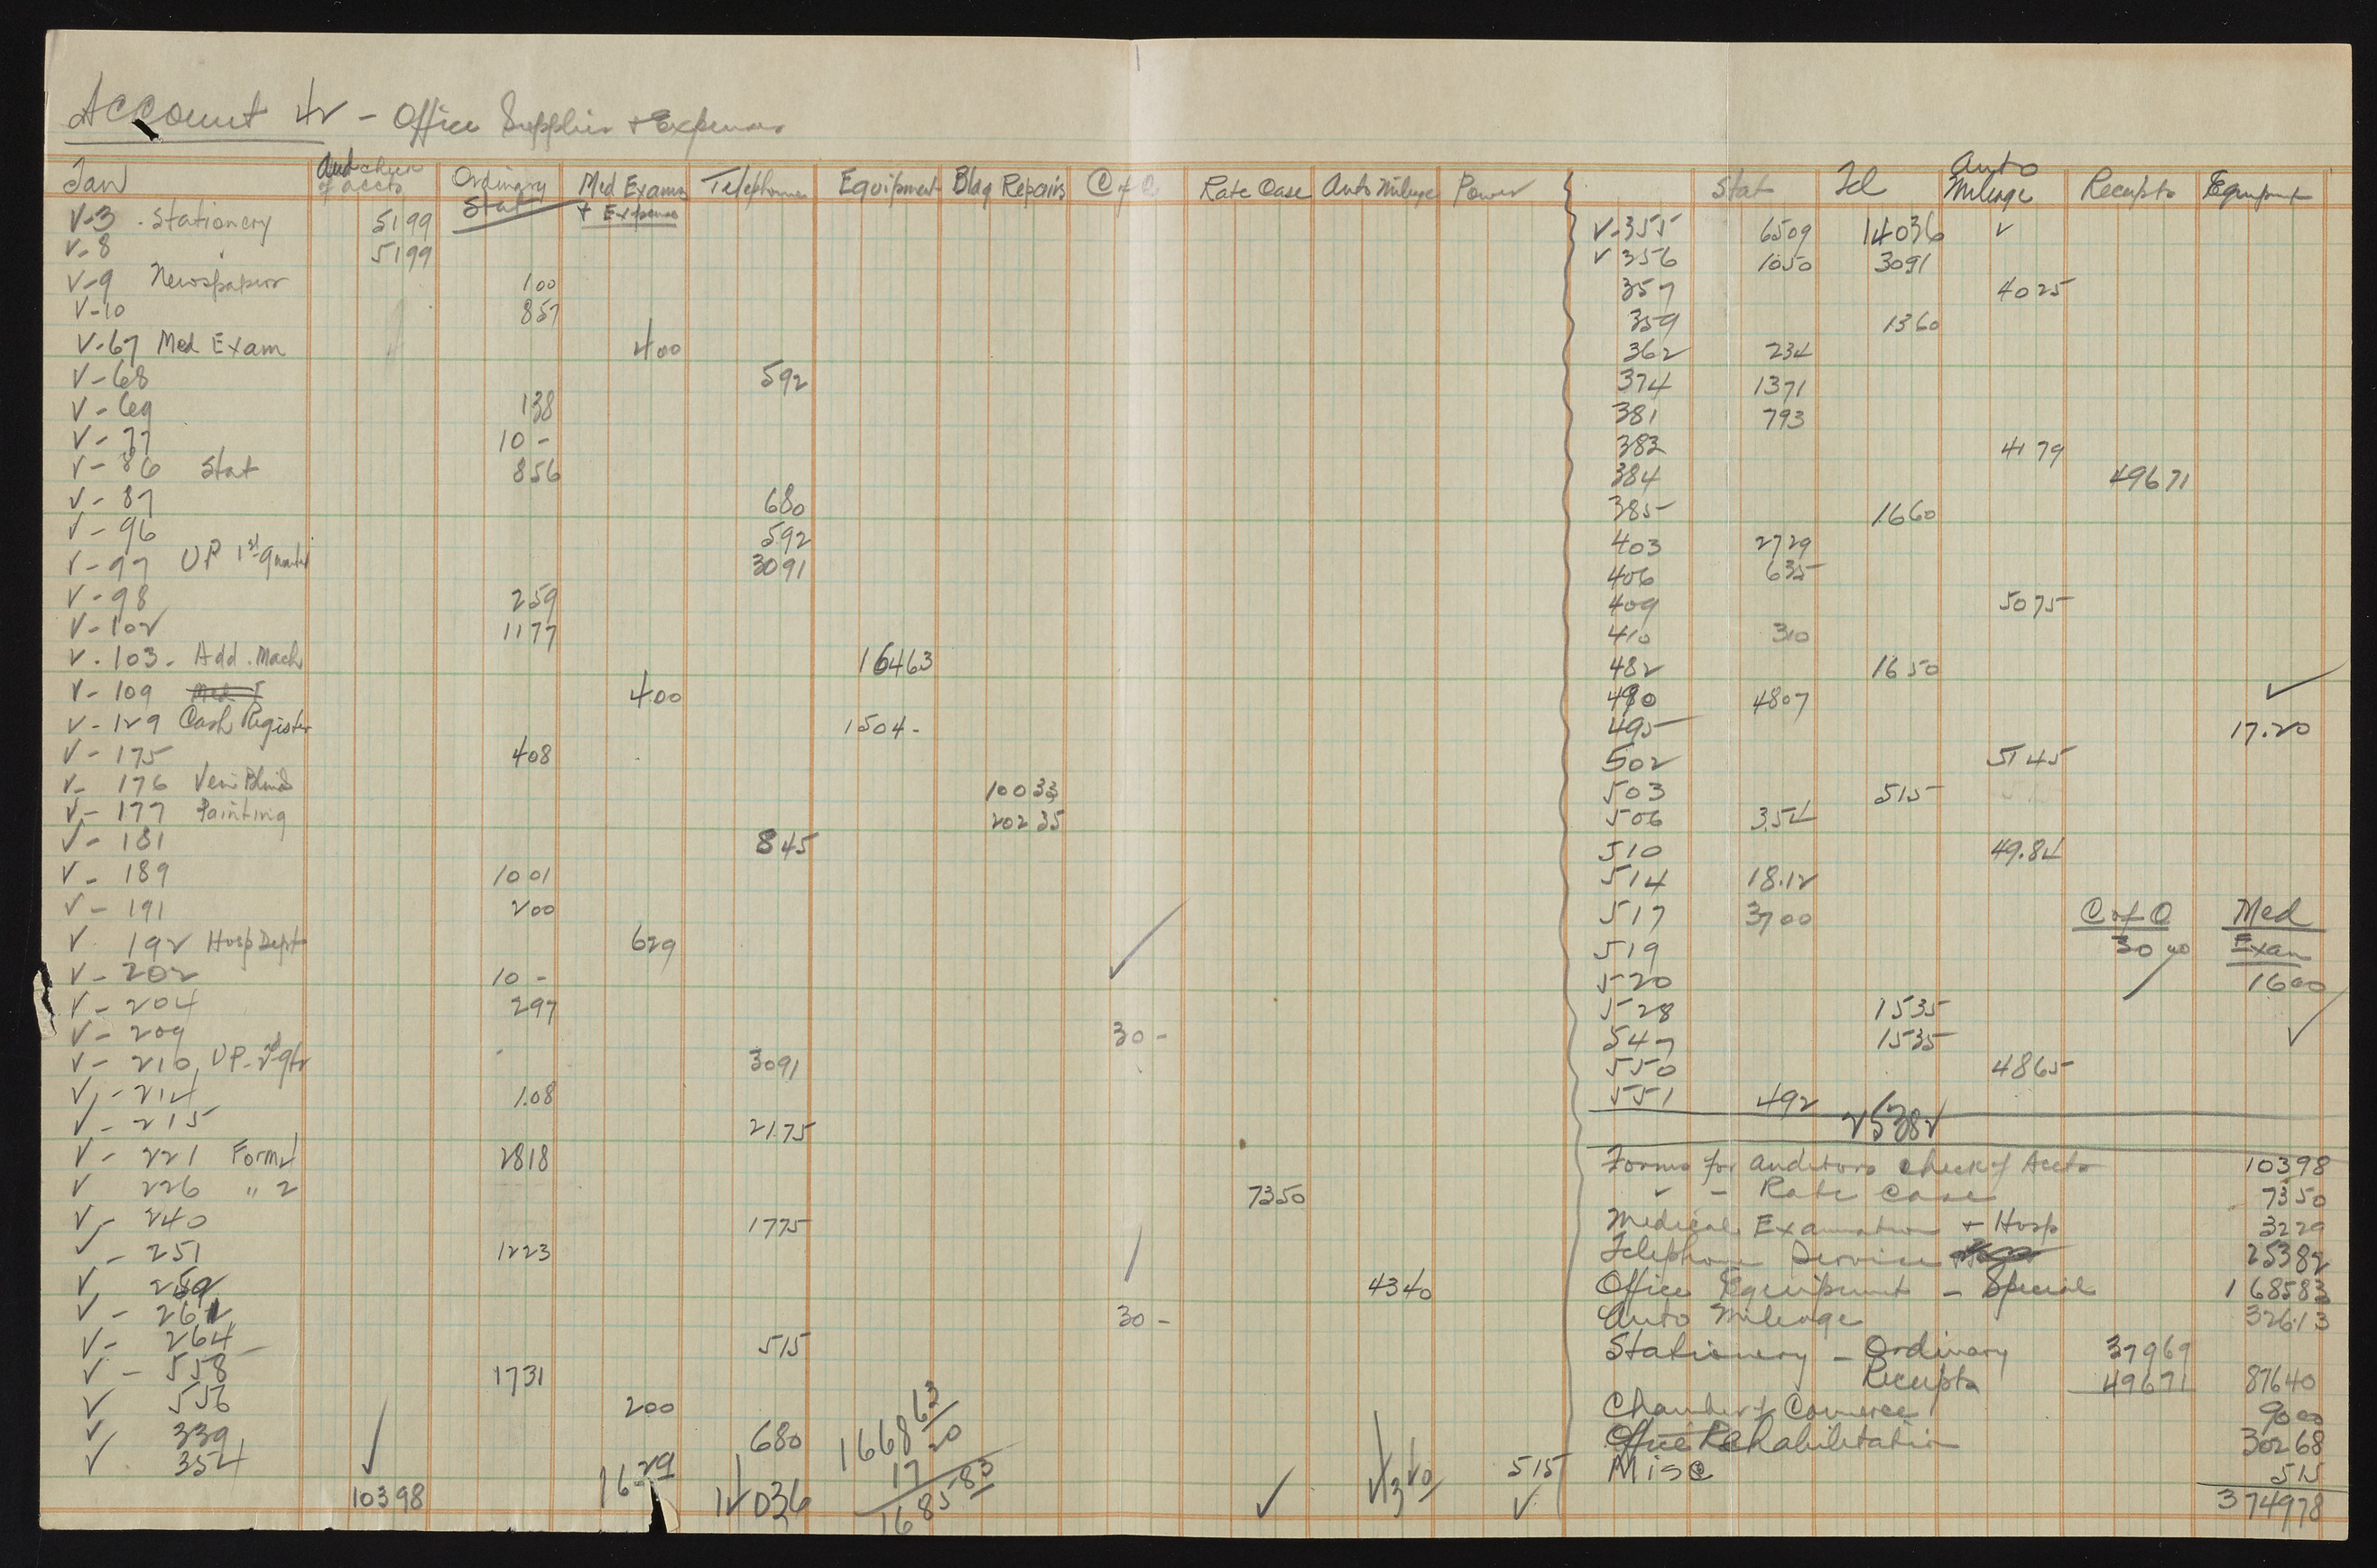 Account 42 - Office Supplies + Expenses
Jan Aud check of accts Ordinary Stat Med Exams + Expense Telephone Equipment Bldg Repairs C of C Rate Case Auto Mileage Power
V-3 - Stationery 5199
V-8 " 5199
V-9 Newspapers 100
V-10 857
V-67 Med Exam 400
V-68 592
V-69 138
V-77 10 -
V-86 Stat 856
V-87 680
V-96 592
V-97 UP 1st Quarter 3091
V-98 259
V-102 1177
V-103 - Add. Mach 16463
V-109 400
V-129 Cash Register 1504 -
V-175 408
V-176 Ven Blinds 10033
V-177 Painting 20235
V-181 845
V-189 1001
V-191 200
V 192 Hosp Dept 629
V-202 10 -
V-204 297
V-209 30 -
V-210 UP - 2nd qtr 3091
V-214 1.08
V-215 2175
V-221 Forms 2818
V 226 " 2 7350
V-240 1775
V-251 1223
V 259 4340
V-262 30 -
V-264 515
V-558 1731
V 556 200
V 339 680
V 354
10398 16 29 14036 ✓ 4340 515 ✓
1668 63
17 20
1685 83
Stat Tel Auto Mileage Receipts Equipment
V-355 6509 14036 ✓
V 356 1050 3091
357 4025
359 1360
362 234
374 1371
381 793
382 4179
384 49671
385 1660
403 2729
406 635
409 5075
410 310
482 1650 ✓
490 4807
495 17.20
502 5145
503 515
506 354
510 49.84
514 18.12
517 3700 C of C Med
519 30 00 Exam
520 1600
528 1535 ✓
547 1535
550 4865
551 492
25382
Forms for Auditors check of Accts 10398
" - Rate Case 7350
Medical Examination + Hosp 3229
Telephone Service 25382
Office Equipment - Special 168583
Auto Mileage 32613
Stationery - Ordinary 37969
Receipts 49671 87640
Chamber of Commerce 9000
Office Rehabilitation 30268
Misc 515
374978